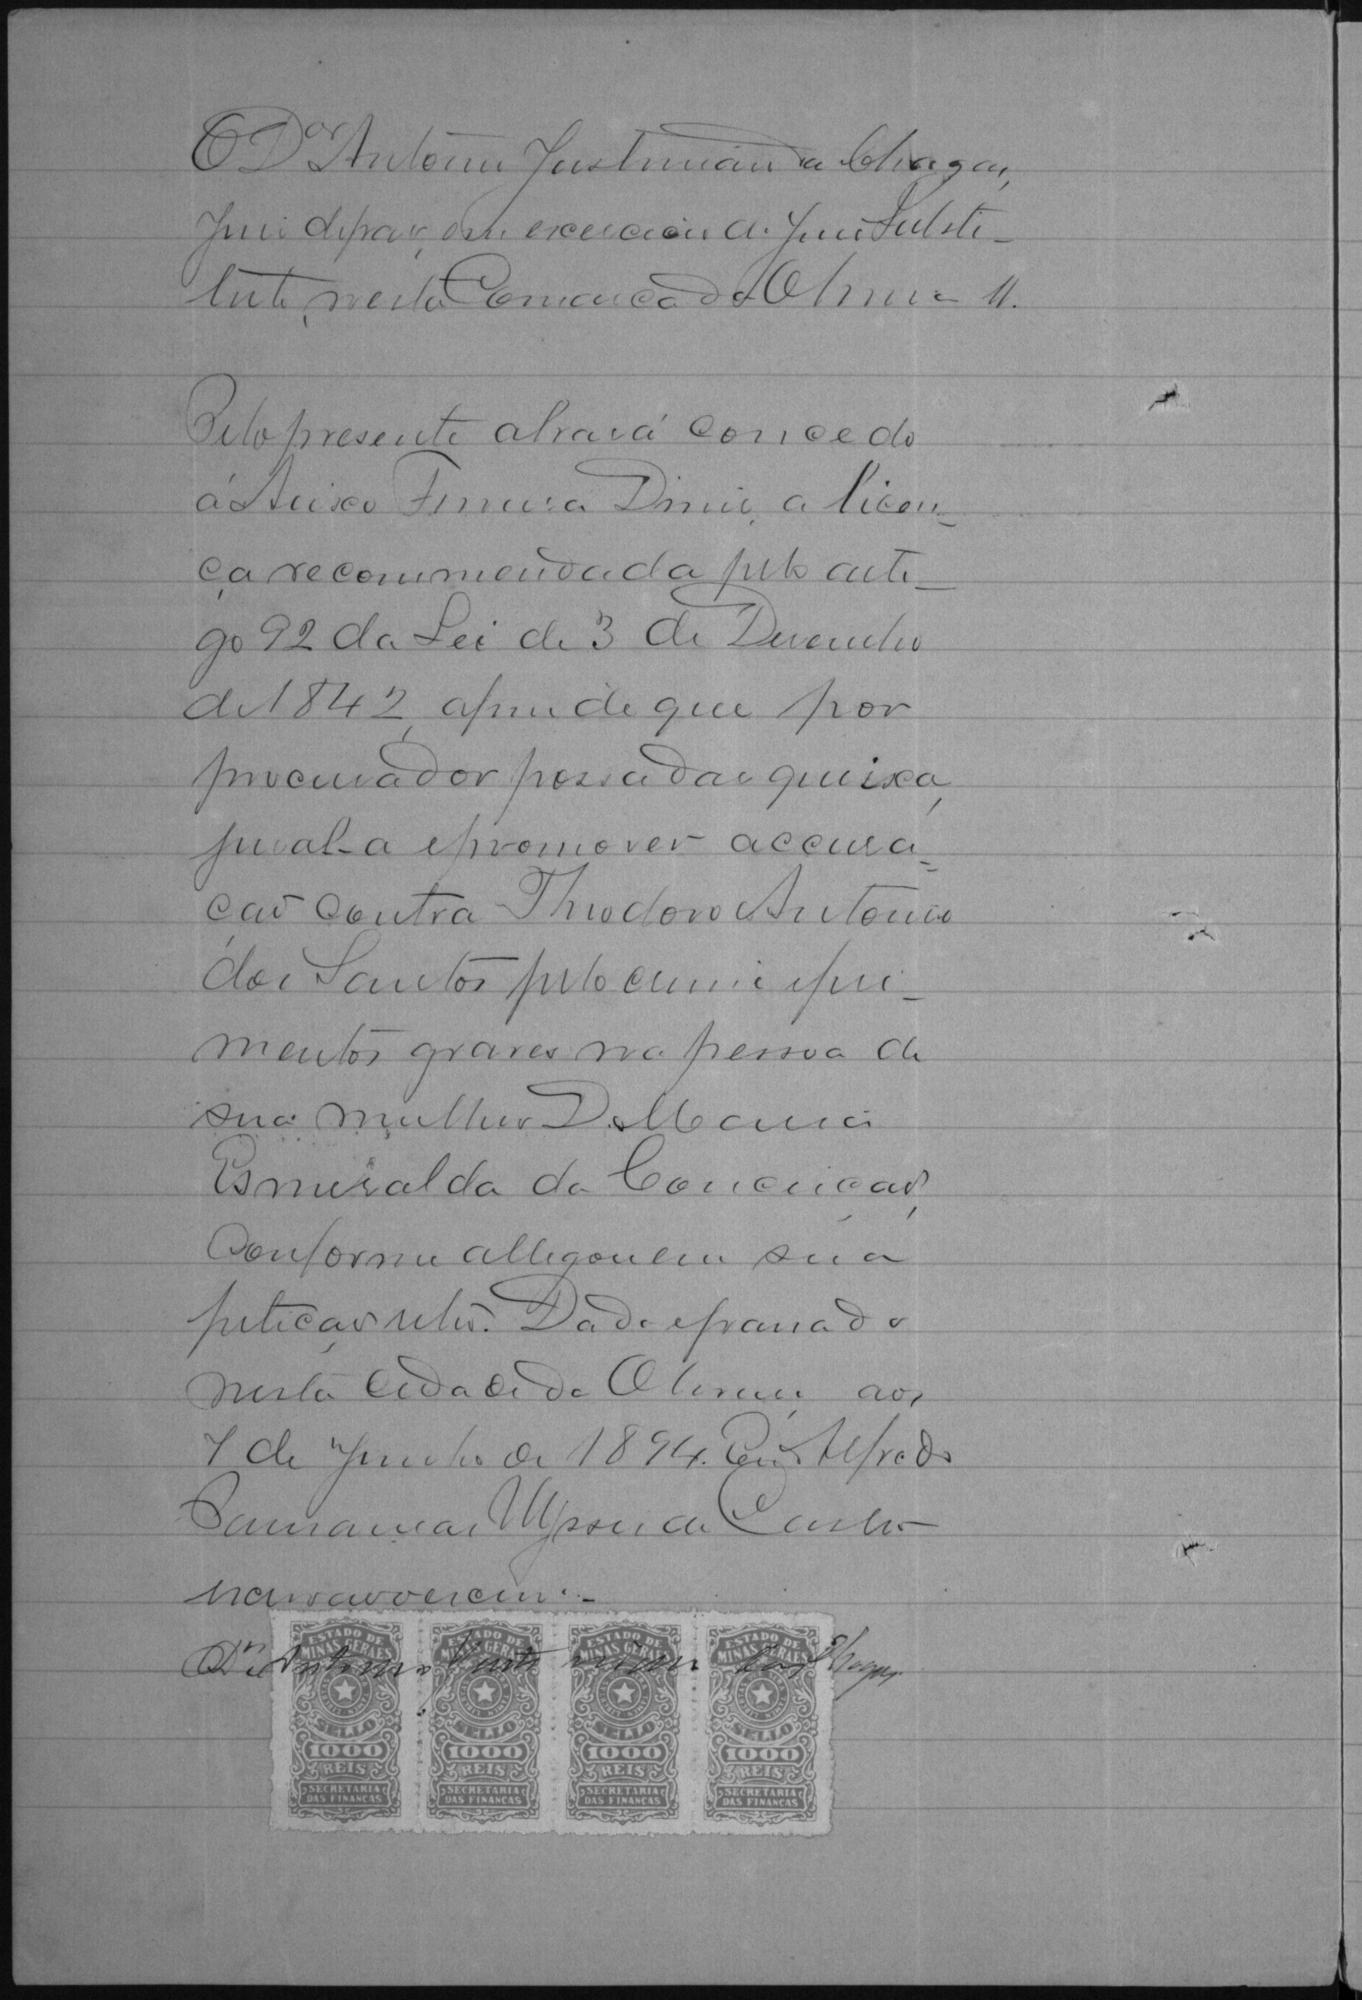 O D.or Antonio Justiniano das Chagas,
Juiz de paz, em exercicio de Juiz Substi-
tuto, nesta Comarca da Oliveira
Pelo presente alvará concedo
á Aleixo Ferreira Diniz, a licen-
ça recommendada pelo arti-
go 92 da Lei de 3 de Dezembro
de 1842, afim de que por
procurador possa dar queixa,
jural-a e promover accusa-
ção contra Theodoro Antonio
dos Santos pelo crime feri-
mentos graves na pessoa de
sua mulher D. Maria
Esmeralda da Conceição,
conforme allegou em sua
petição retro. Dado e passado
nesta cidade da Oliveira, aos
7 de Junho de 1894. Eu, Alfredo
de Castro
escrivão o escrevi.-
Dr. Antonio Justiniano das Chagas
ESTADO DE MINAS GERAES ESTADO DE MINAS GERAES ESTADO DE MINAS GERAES ESTADO DE MINAS GERAES
SELLO SELLO SELLO SELLO
1000 1000 1000 1000
REIS REIS REIS REIS
SECRETARIA SECRETARIA SECRETARIA SECRETARIA
DAS FINANCAS DAS FINANCAS DAS FINANCAS DAS FINANCAS